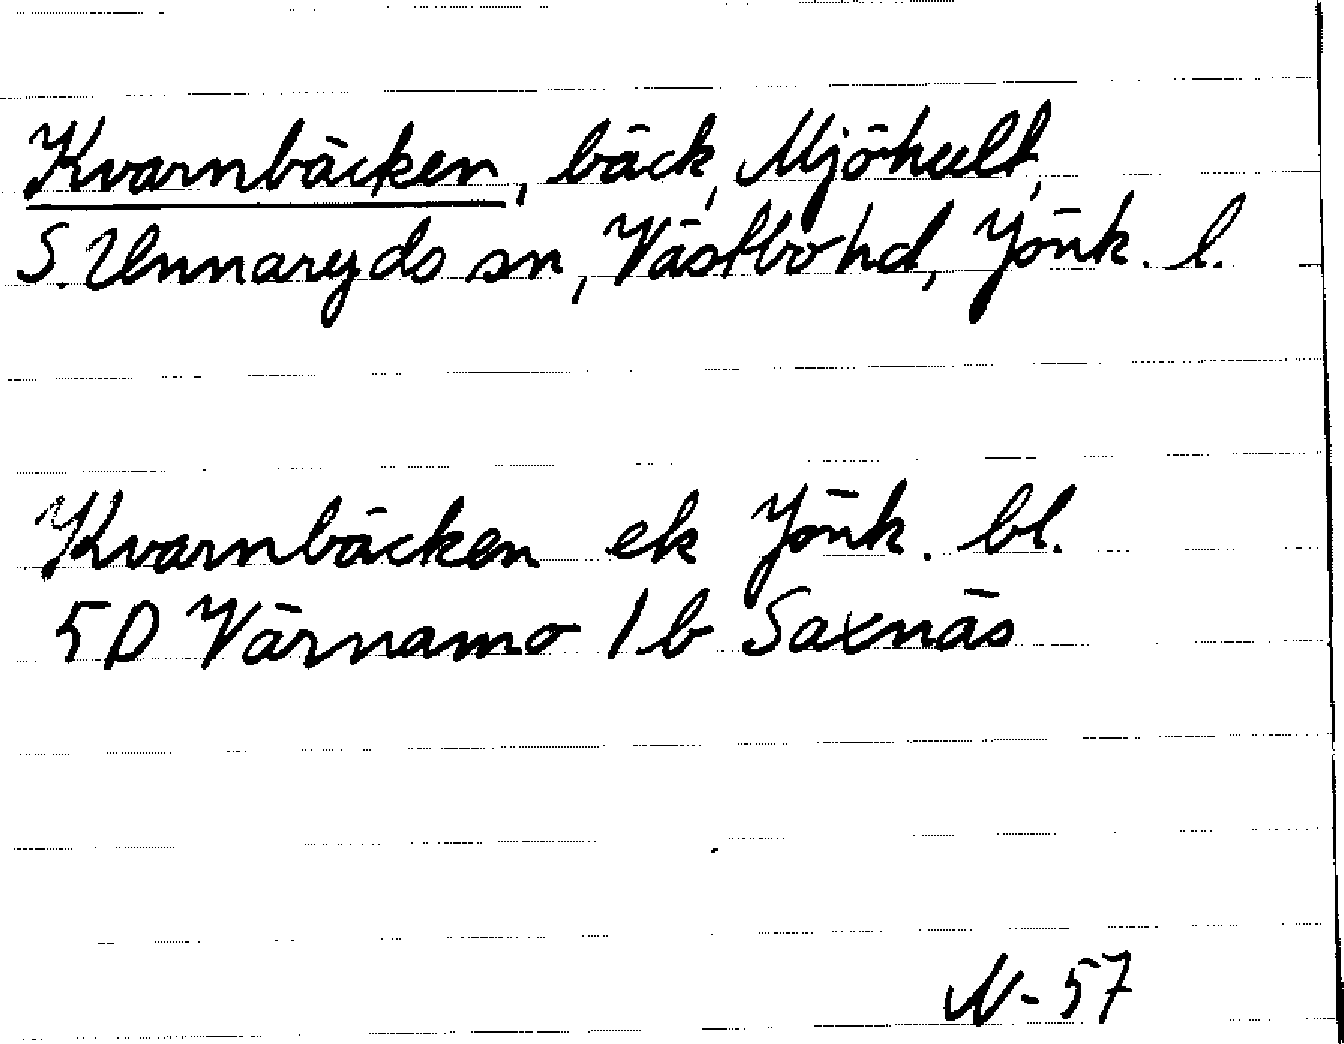 Kvarnbäcken, bäck, Mjöhult,
S. Unnaryds sn, Västbo hd, Jönk. l.
Kvarnbäcken ek Jönk. bl.
5D Värnamo 1b Saxnäs
N-57